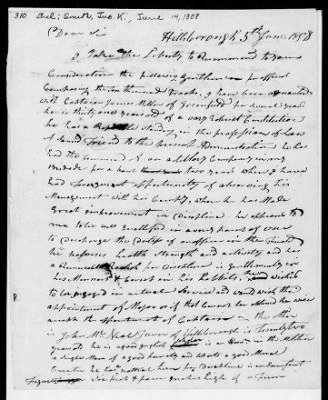 310 Encl: Smith, Jno. K., June 14, 1808
Hillsborough 5th June 1808
Dear Sir
I Take the Liberty to Recommend to your
Consideration the following Gentlemen as officers
Composing the six thousand troops, I have been acquainted
with Captain James Miller of Greenfield for several years
he is thirty one years old of a very robust Constitution
he has a standing in the profession of Law
a friend to the present Administration he has
had the command of an artillery Company in my
Brigade for about two years when I have
had frequent oppertunity of observing his
Management with his Company, when he has Made
Great improvement in Discipline he appears to
me to be well Qualified in every point of view
to Discharge the Duties of an officer in the
he possesses health strength and activity and has
a for Discipline is Gentlemanly in
his Manners & correct in his habits, wishes
to be engaged in actual Service and would wish the
appointment of Major or if that cannot be attained he would
accept the appointment of Captain - the other
is John McNeal Junior of Hillsborough is twenty two
years old he is a good english is an in the Militia
a single Man of a good family and wants a good Moral
he has for Discipline is
six feet & four inches high of a firm